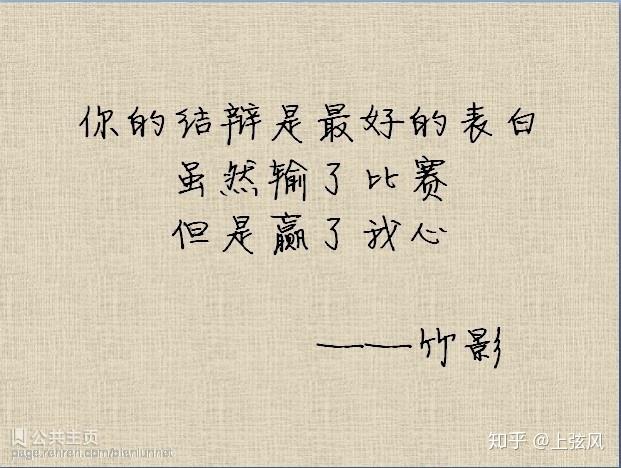 你的结辩是最好的表白
虽然输了比赛
但是赢了我心
——竹影
公共主页
page.renren.com/bianlunnet
知乎 @上弦风